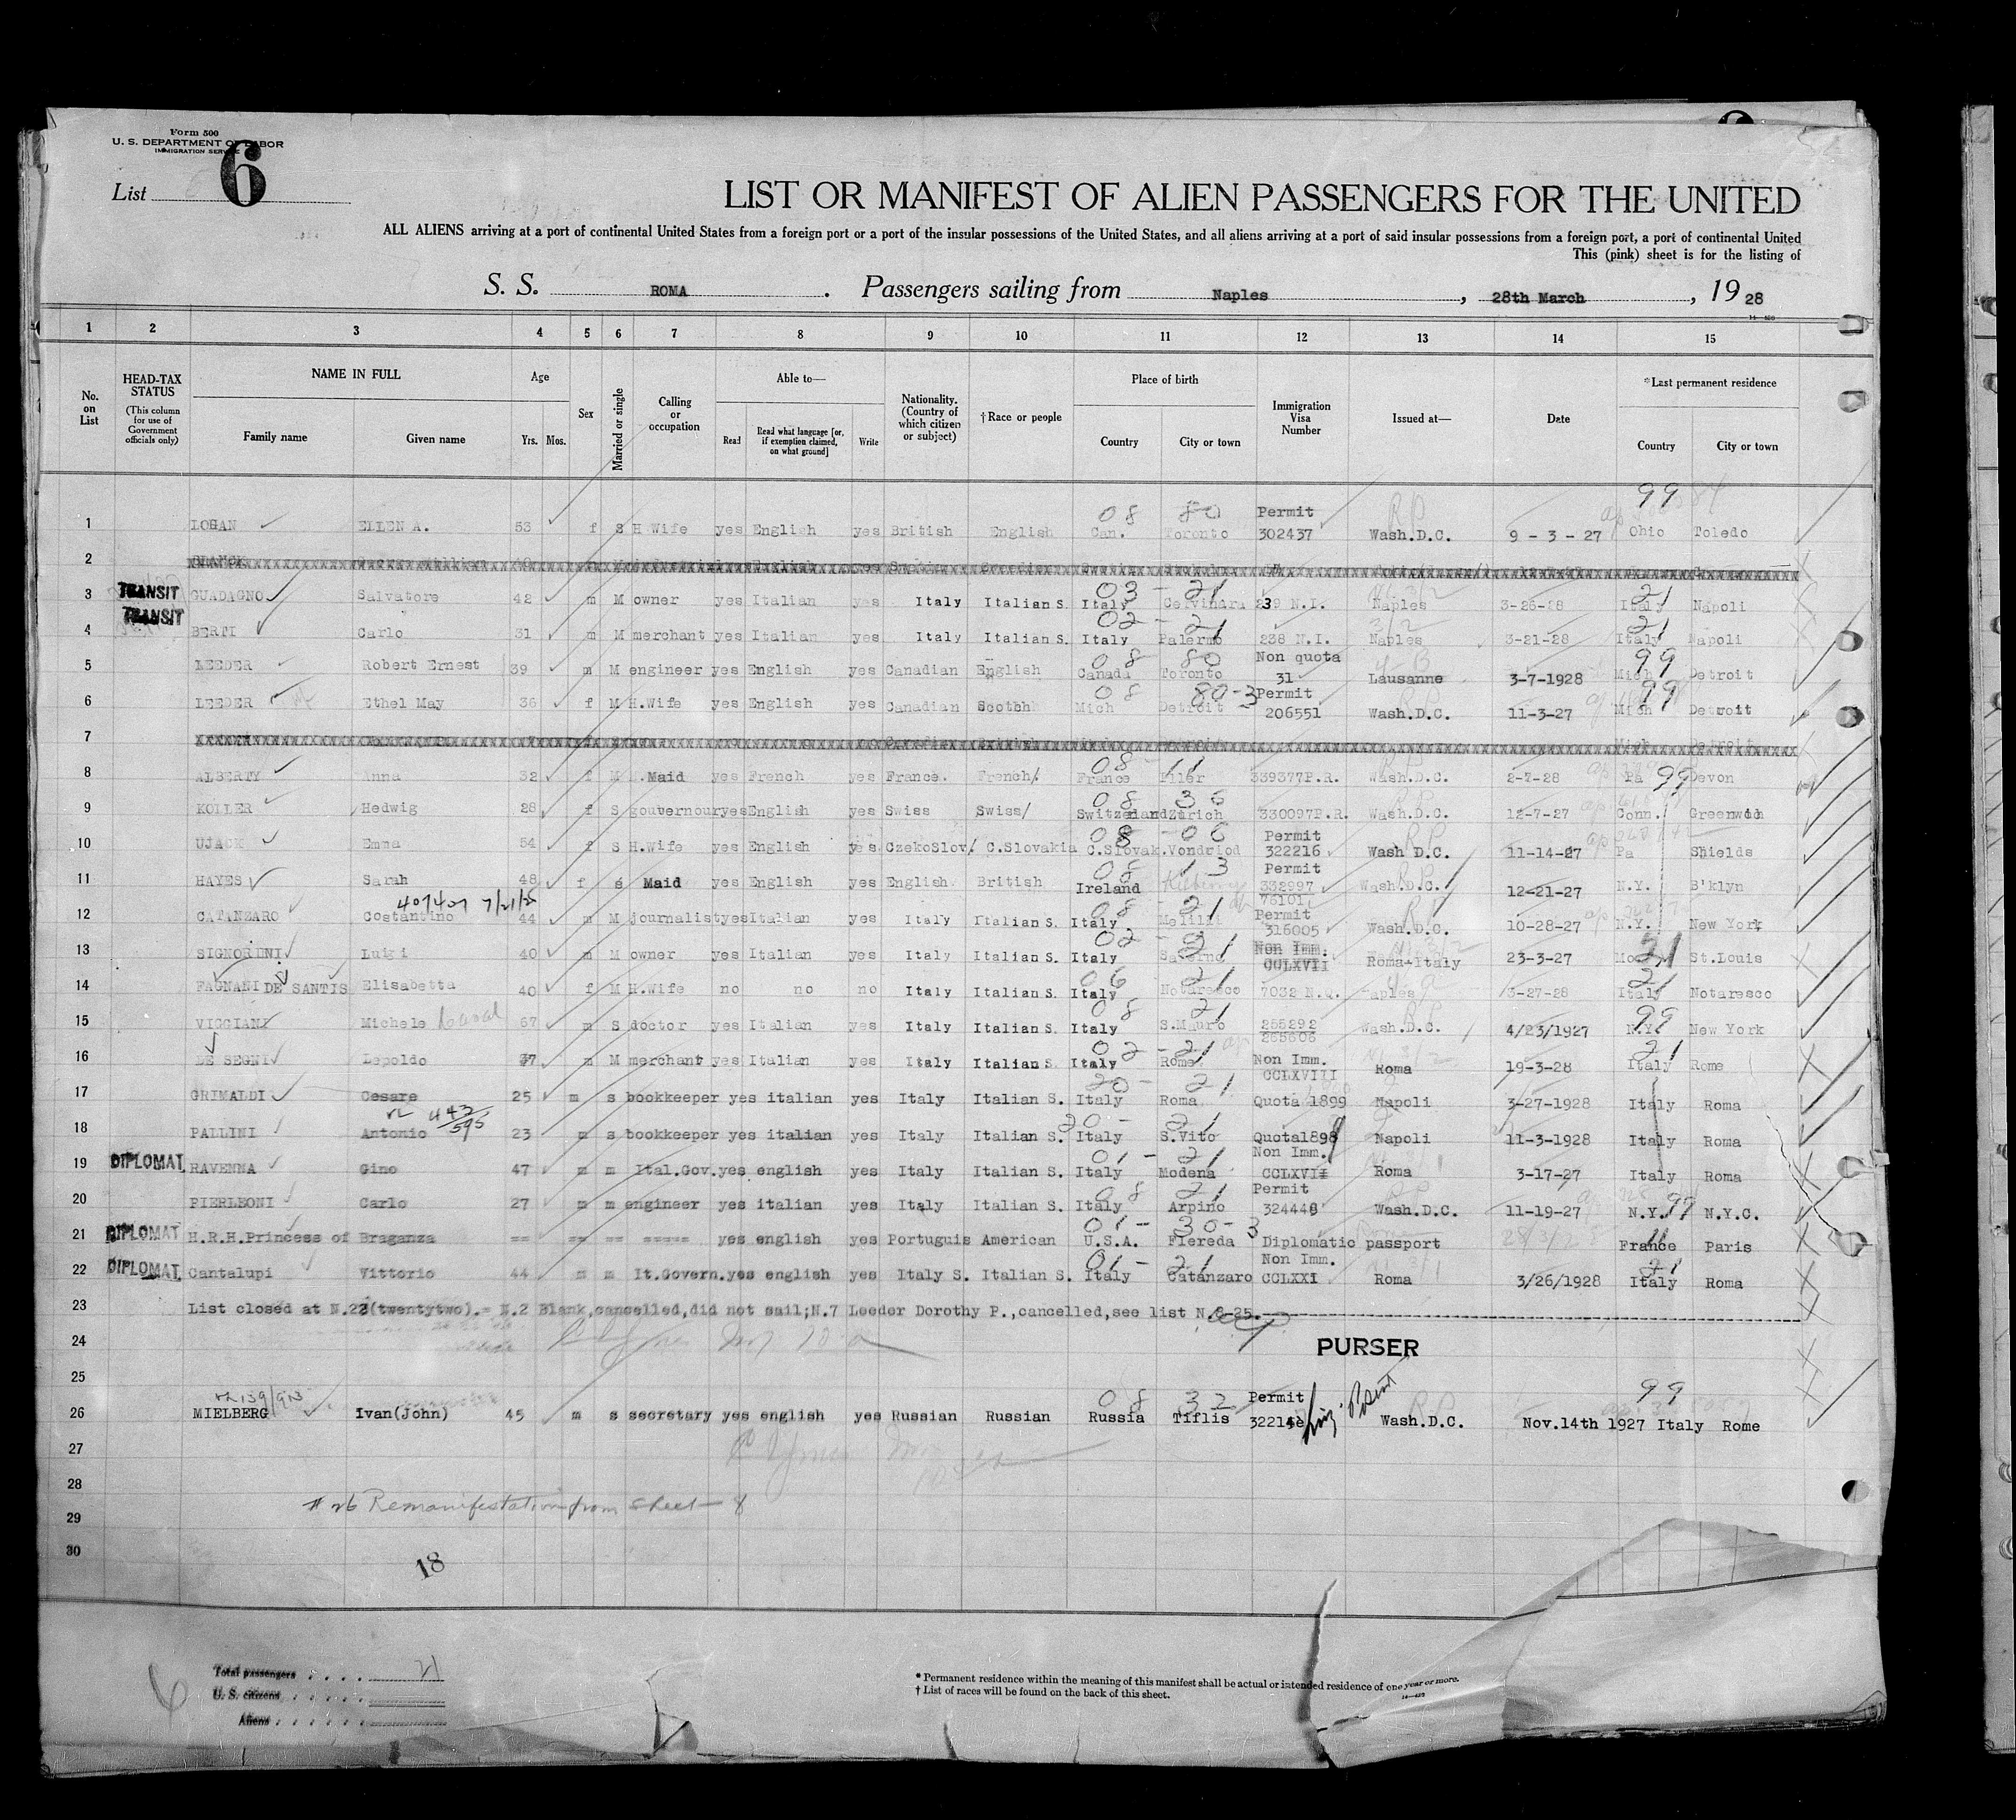 Form 500
U. S. DEPARTMENT OF LABOR
IMMIGRATION SERVICE
List 6
LIST OR MANIFEST OF ALIEN PASSENGERS FOR THE UNITED
ALL ALIENS arriving at a port of continental United States from a foreign port or a port of the insular possessions of the United States, and all aliens arriving at a port of said insular possessions from a foreign port, a port of continental United
This (pink) sheet is for the listing of
S. S. ROMA . Passengers sailing from Naples , 28th March , 19 28
1 2 3 4 5 6 7 8 9 10 11 12 13 14 15
No. on List
HEAD-TAX STATUS (This column for use of Government officials only)
NAME IN FULL Family name Given name
Age Yrs. Mos.
Sex
Married or single
Calling or occupation
Able to— Read Read what language [or, if exemption claimed, on what ground] Write
Nationality. (Country of which citizen or subject)
†Race or people
Place of birth Country City or town
Immigration Visa Number
Issued at—
Date
*Last permanent residence Country City or town
08 80 Permit 99
1 ELLEN A. 53 f S H Wife yes English yes British English Can. Toronto 302437 Wash.D.C. 9 - 3 - 27 Ohio Toledo
2
03 - 21 21
3 TRANSIT GUADAGNO Salvatore 42 m M owner yes Italian yes Italy Italian S. Italy 239 N.I. Naples 3-26-28 Italy Napoli
02 - 21 21
4 TRANSIT BERTI Carlo 31 m M merchant yes Italian yes Italy Italian S. Italy Palermo 238 N.I. Naples 3-21-28 Italy Napoli
08 80 Non quota 99
5 LEEDER Robert Ernest 39 m M engineer yes English yes Canadian English Canada Toronto 31 Lausanne 3-7-1928 Mich Detroit
08 80-3 Permit 99
6 LEEDER Ethel May 36 f M H.Wife yes English yes Canadian Scotbh Mich Detroit 206551 Wash.D.C. 11-3-27 Mich Detroit
7
08 - 11
8 ALBERTY Anna 32 f M Maid yes French yes France. French/. France 339377P.R. Wash.D.C. 2-7-28 Pa 99 Devon
08 36
9 KOLLER Hedwig 28 f S gouvernour yes English yes Swiss Swiss/ Switzerland Zurich 330097P.R. Wash.D.C. 12-7-27 Conn. Greenwch
08 - 06 Permit
10 UJACK Emma 54 f S H.Wife yes English yes CzekoSlov/ C.Slovakia C.Slovak. Vondriod 322216 Wash D.C. 11-14-27 Pa Shields
08 13 Permit
11 HAYES Sarah 48 f s Maid yes English yes English British Ireland 332997 Wash.D.C. 12-21-27 N.Y. B'klyn
08 - 21 76101 Permit
12 CATANZARO Costantino 44 m M journalist yes Italian yes Italy Italian S. Italy Melilli 316005 Wash.D.C. 10-28-27 N.Y. New York
02 - 21 Non Imm. 21
13 SIGNORINI Luigi 40 m M owner yes Italian yes Italy Italian S. Italy CCLXVII Roma-Italy 23-3-27 St.Louis
06 - 21 21
14 FAGNANI DE SANTIS Elisabetta 40 f M H.Wife no no no Italy Italian S. Italy Notaresco 7032 N.Q. Naples 3-27-28 Italy Notaresco
08 21 99
15 VIGGIANI Michele 67 m S doctor yes Italian yes Italy Italian S. Italy S.Mauro 255292 265606 Wash.D.C. 4/23/1927 N.Y. New York
02 - 21 Non Imm. 21
16 DE SEGNI Lepoldo 37 m M merchant yes Italian yes Italy Italian S. Italy Rome CCLXVIII Roma 19-3-28 Italy Rome
20 - 21
17 GRIMALDI Cesare 25 m s bookkeeper yes italian yes Italy Italian S. Italy Roma Quota 1899 Napoli 3-27-1928 Italy Roma
20 - 21
18 PALLINI Antonio 23 m s bookkeeper yes italian yes Italy Italian S. Italy S.Vito Quota1898 Napoli 11-3-1928 Italy Roma
01 - 21 Non Imm.
19 DIPLOMAT. RAVENNA Gino 47 m m Ital.Gov. yes english yes Italy Italian S. Italy Modena CCLXVII Roma 3-17-27 Italy Roma
08 21 Permit
20 PIERLEONI Carlo 27 m m engineer yes italian yes Italy Italian S. Italy Arpino 324448 Wash.D.C. 11-19-27 N.Y. 99 N.Y.C.
01 - 30-3
21 DIPLOMAT H.R.H.Princess of Braganza == == == ===== yes english yes Portuguis American U.S.A. Flereda Diplomatic passport France Paris
01 - 21 Non Imm. 21
22 DIPLOMAT. Cantalupi Vittorio 44 m m It.Govern. yes english yes Italy S. Italian S. Italy Catanzaro CCLXXI Roma 3/26/1928 Italy Roma
23 List closed at N.22(twentytwo).= N.2 Blank,cancelled,did not sail;N.7 Leeder Dorothy P.,cancelled,see list N.8-25.
24 PURSER
25
08 32 Permit 99
26 MIELBERG Ivan(John) 45 m s secretary yes english yes Russian Russian Russia Tiflis Wash.D.C. Nov.14th 1927 Italy Rome
27
28
# 26 Remanifestation from sheet - 8
29
30
18
Total passengers . . . . 21
U. S. citizens . . . . .
Aliens . . . . . .
6
* Permanent residence within the meaning of this manifest shall be actual or intended residence of one year or more.
† List of races will be found on the back of this sheet.